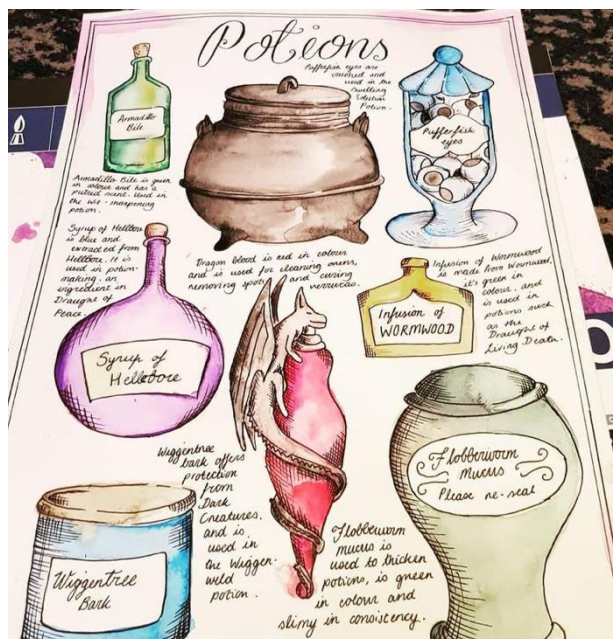 Potions
Pufferfish eyes are
crushed and
used in the
Swelling
Solution
Potion.
Armadillo
Bile
Pufferfish
eyes
Armadillo Bile is green
in colour and has a
putrid scent. Used in
the Wit-sharpening
potion.
Syrup of Hellbore
is blue and
extracted from
Hellbore. It is
used in potion-
making, an
ingredient in
Draught of
Peace.
Dragon blood is red in colour
and is used for cleaning ovens,
removing spots and curing
verrucas.
Infusion of Wormwood
is made from Wormwood,
it's green in
colour, and
is used in
potions such
as the
Draught of
Living Death.
Infusion of
WORMWOOD
Syrup of
Hellebore
Wiggentree
bark offers
protection
from
Dark
Creatures,
and is
used in
the Wiggen-
weld
potion.
Flobberworm
Mucus
Please re-seal
Flobberworm
mucus is
used to thicken
potions, is green
in colour and
slimy in consistency.
Wiggentree
Bark